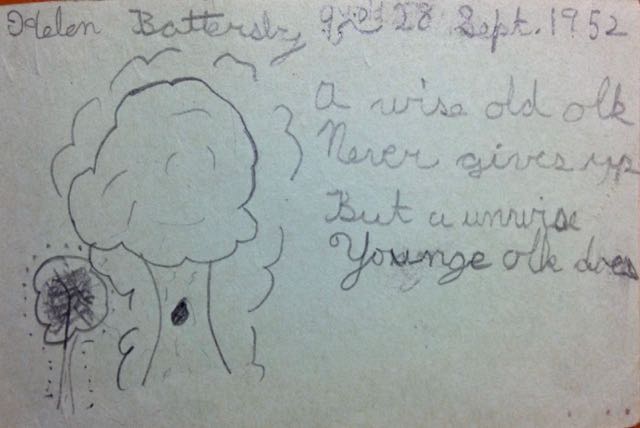 Helen Battersby 28 Sept. 1952
A wise old olk
Never gives up
But a unwise
Younge olk does